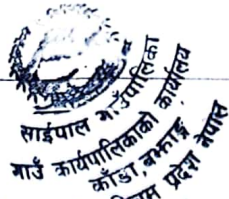 साईपाल गाउँपालिका
गाउँ कार्यपालिकाको कार्यालय
काँडा, बझाङ्ग
प्रदेश नेपाल